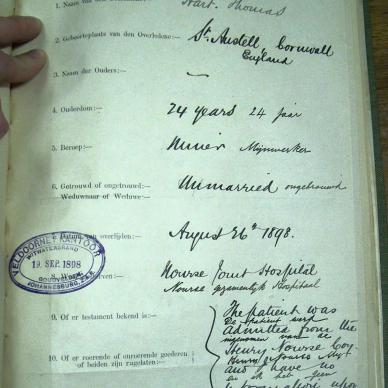 1. Naam van den
Hart. Thomas
2. Geboorteplaats van den Overledene:—
St. Austell, Cornwall
England
3. Namen der Ouders:—
4. Ouderdom:—
24 years 24 jaar
5. Beroep:—
Miner Mijnwerker
6. Getrouwd of ongetrouwd:—
Weduwnaar of Weduwe:—
Unmarried ongetrouwd
Datum van overlijden:—
August 26th 1898.
VELDCORNET KANTOOR
WITWATERSRAND
19. SEP. 1898
JOHANNESBURG, Z.A.R.
8.
Nourse Joint Hospital
Nourse gezamenlijk Hospitaal
9. Of er testament bekend is:—
The patient was
De patient werd
admitted from the
Henry Nourse
10. Of er roerende of onroerende goederen
of beiden zijn nagelaten:—
and I have no
en ik heb geen